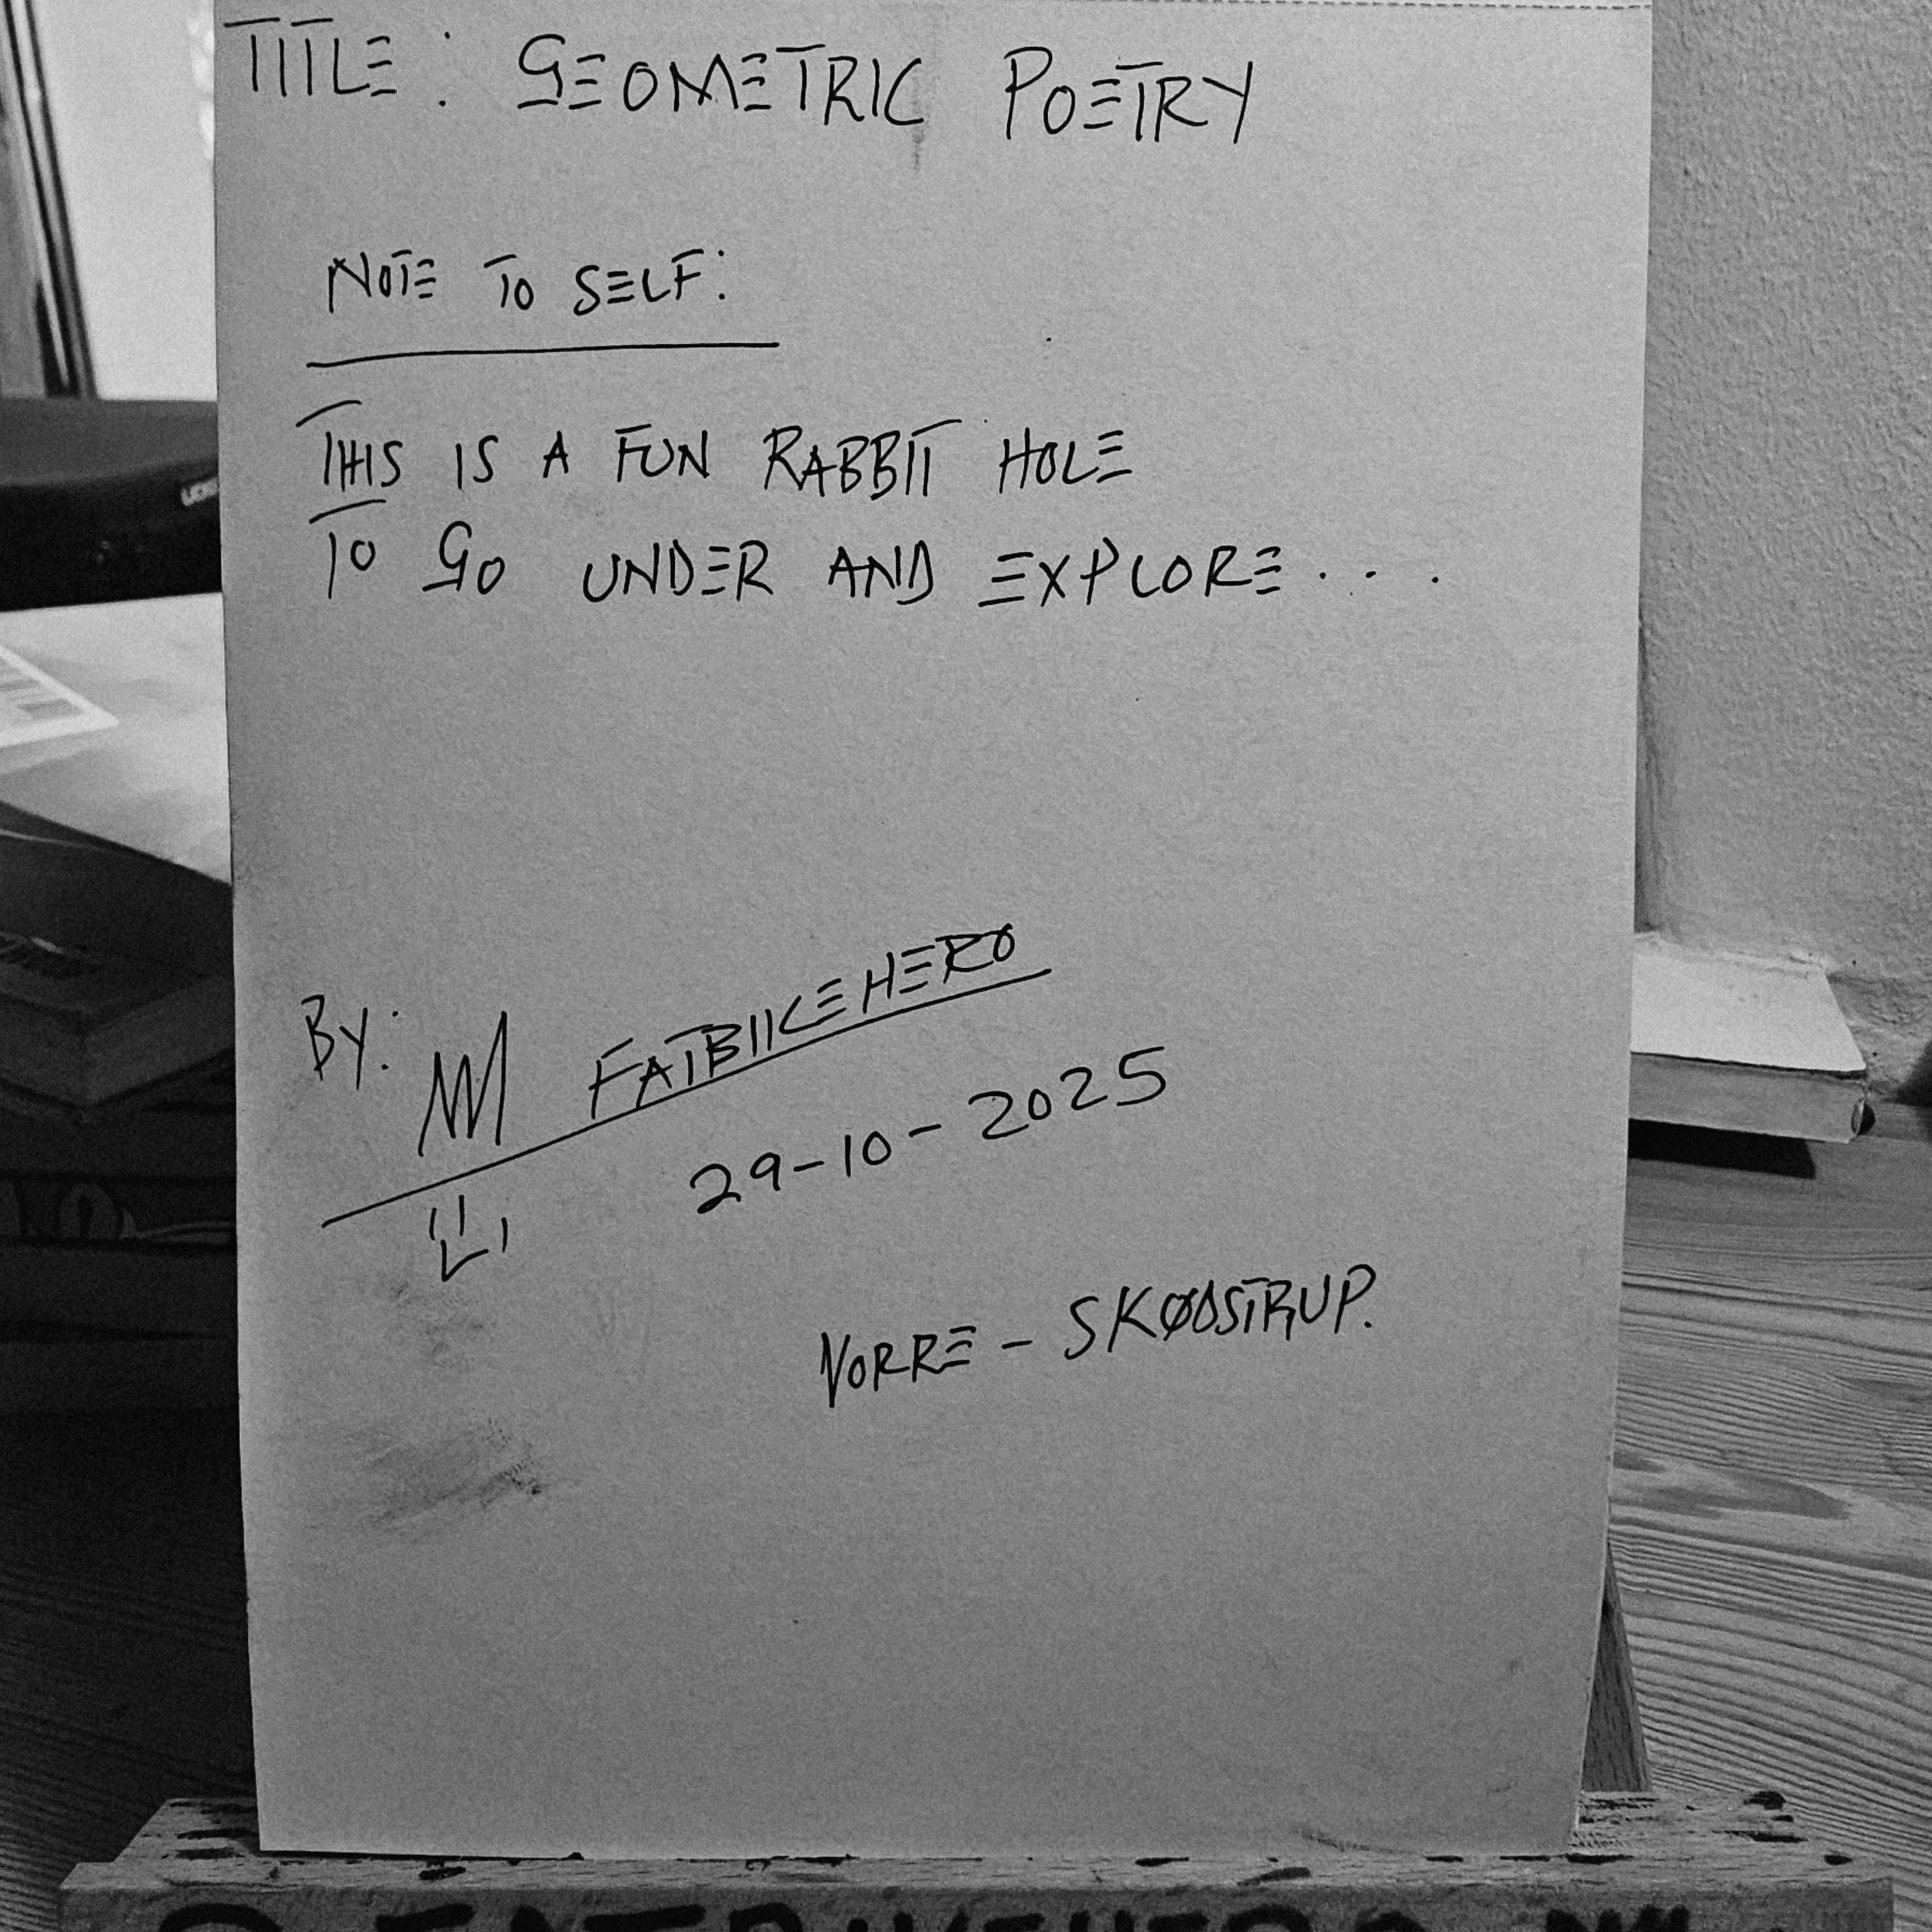 TITLE: GEOMETRIC POETRY
NOTE TO SELF:
THIS IS A FUN RABBIT HOLE
TO GO UNDER AND EXPLORE....
BY: FATBIKEHERO
29-10-2025
VORRE - SKØDSTRUP.